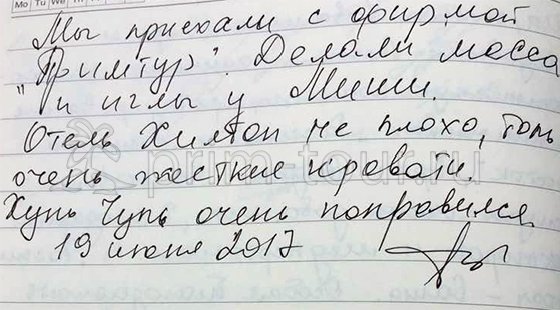 Mo Tu We
Мы приехали с фирмой
"Примтур". Делали масса
и иглы у Миши.
Отель Хилтон не плохо, толь
очень жесткие кровати.
Хунь Чунь очень понравился
19 июня 2017
prim-tour.ru